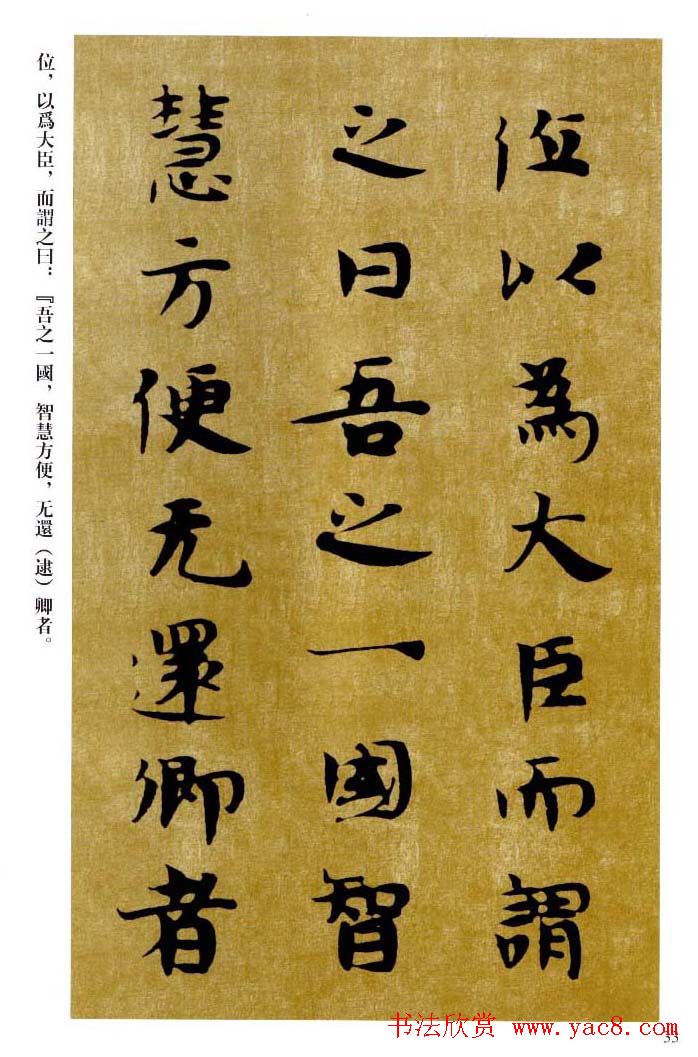 位以為大臣而謂
之曰吾之一國智
慧方便无還卿者
位，以爲大臣，而謂之曰：『吾之一國，智慧方便，无還（逮）卿者。
书法欣赏 www.yac8.com
33